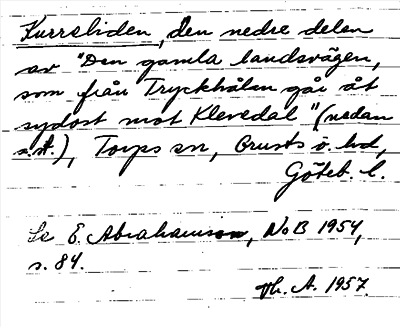 Kurreliden, den nedre delen
av "Den gamla landsvägen,
som från Tryckhålan går åt
sydost mot Klevedal" (nedan
s.st.), Torps sn, Orusts ö. hd,
Göteb. l.
Se E. Abrahamson, NoB 1954,
s. 84.
Th. A. 1957.